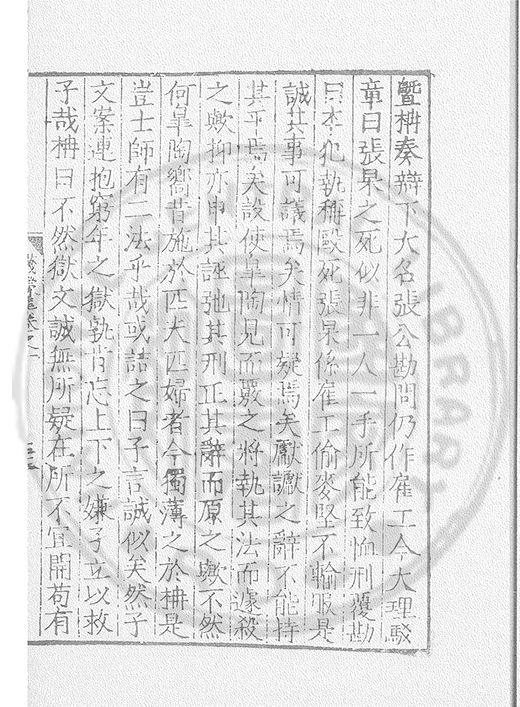 暨柟奏辯下大名張公勘問仍作雇工今大理駁
章曰張杲之死似非一人一手所能致恤刑覆勘
曰本犯執稱毆死張杲係雇工偷麥堅不輸服是
誠其事可議焉矣情可疑焉矣獻讞之辭不能持
其平焉矣設使皋陶見而覈之將執其法而遽殺
之歟抑亦申其誣弛其刑正其辭而原之歟不然
何皋陶嚮昔施於匹夫匹婦者今獨薄之於柟是
豈士師有二法乎哉或詰之曰子言誠似矣然子
文案連抱窮年之獄孰肯忘上下之嫌子立以救
子哉柟曰不然獄文誠無所疑在所不宜開苟有